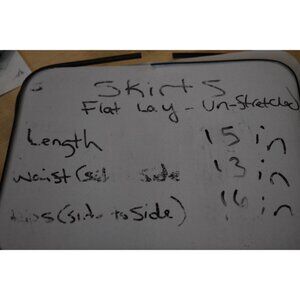 Skirt S
Flat Lay - Un-Stretched
Length 15 in
waist (sid side 13 in
(side to side) 16 in